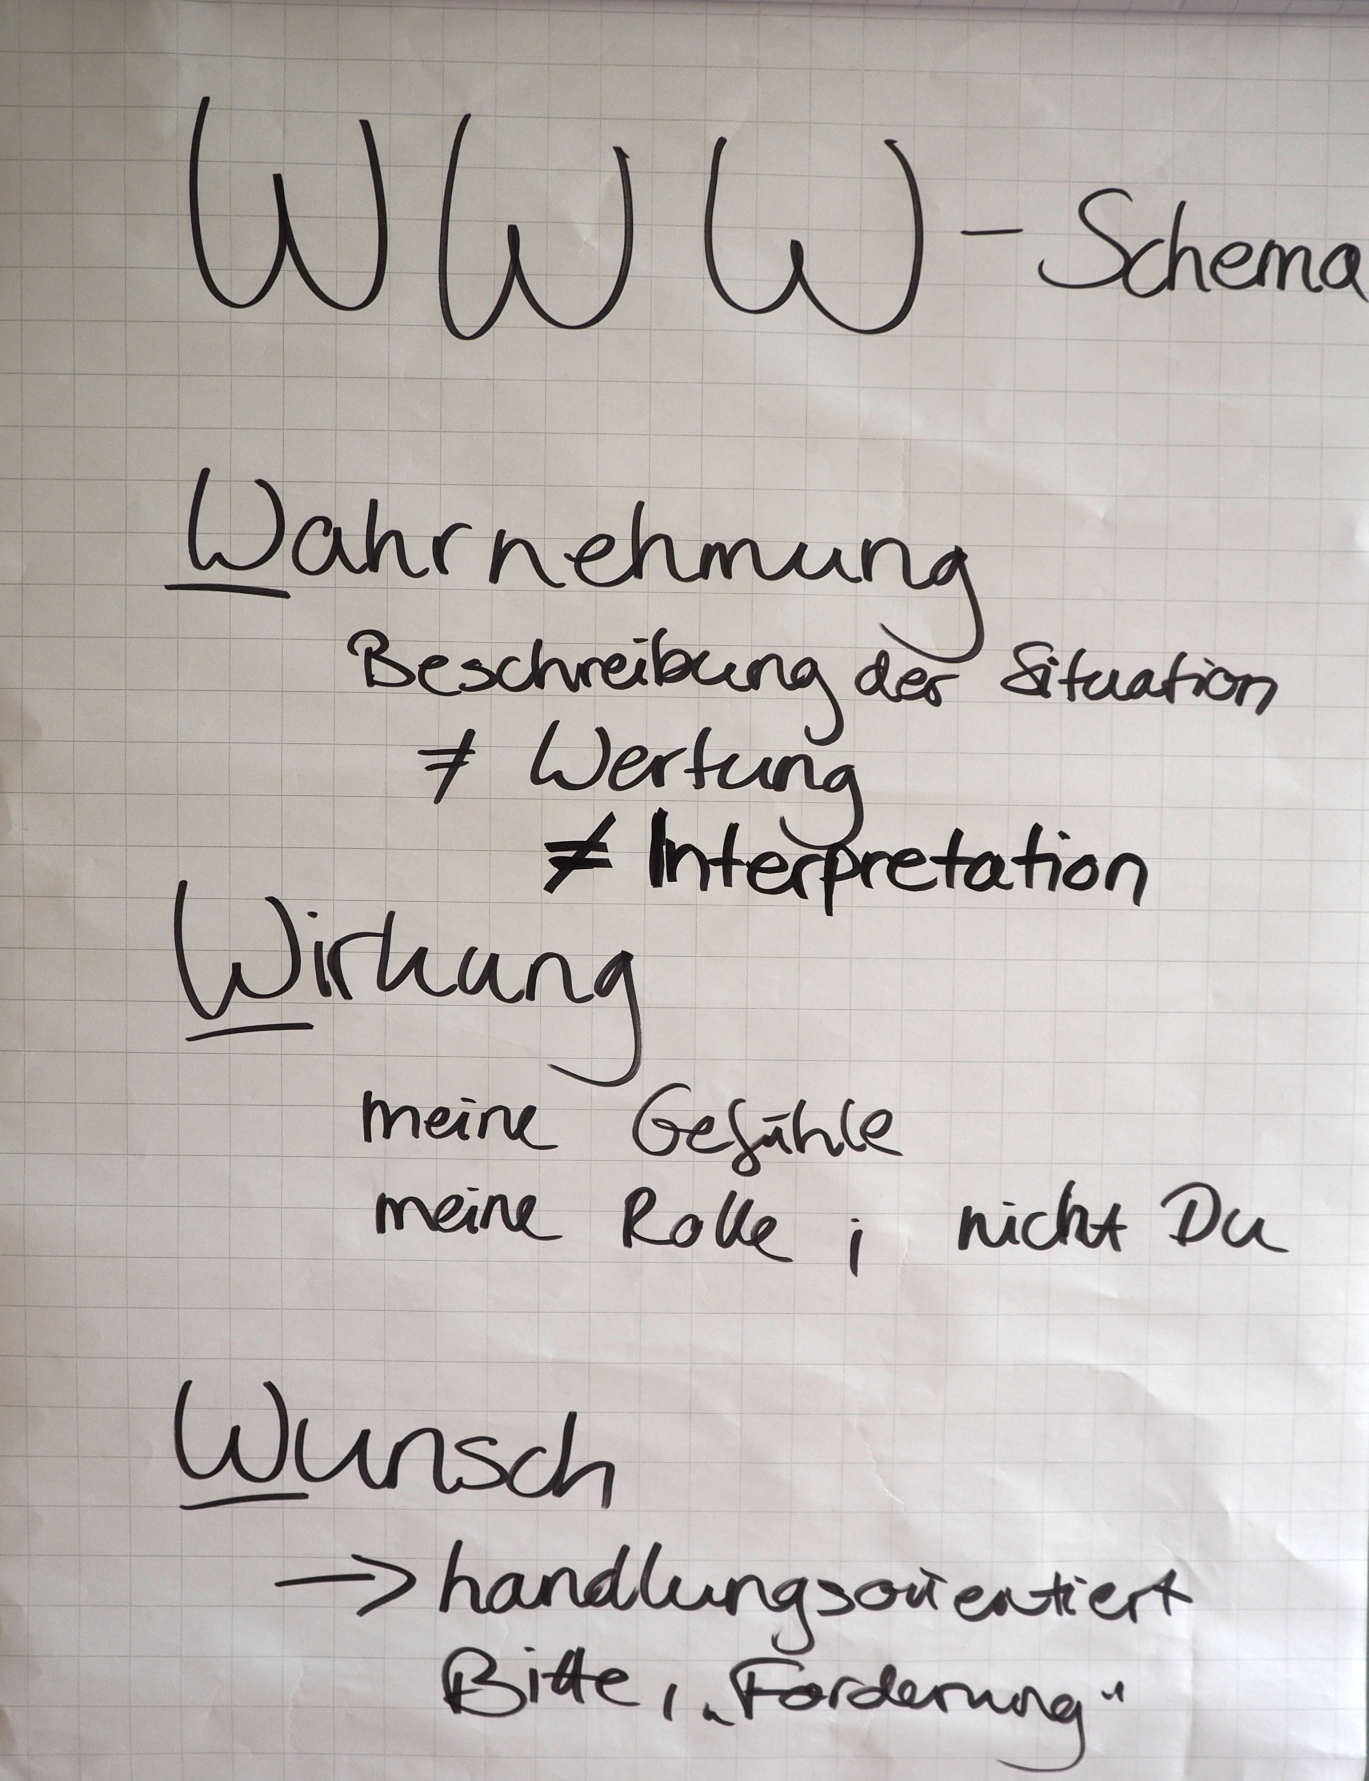 WWW - Schema
Wahrnehmung
Beschreibung der Situation
≠ Wertung
≠ Interpretation
Wirkung
meine Gefühle
meine Rolle ; nicht Du
Wunsch
→ handlungsorientiert
Bitte, „Forderung“